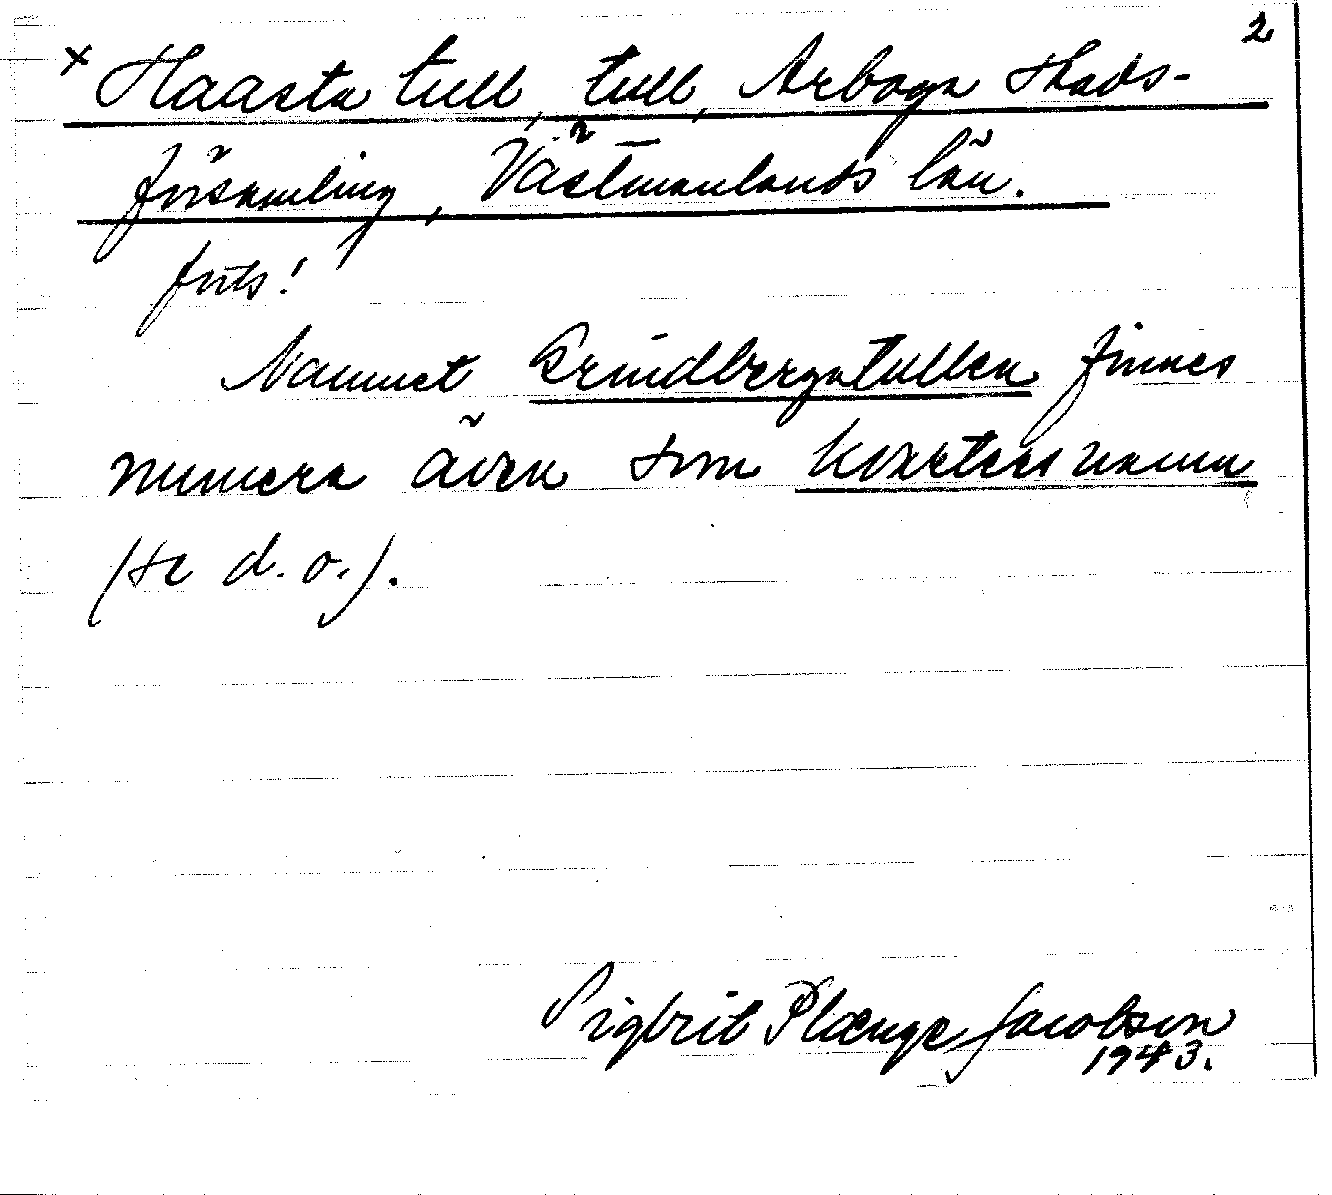 2
x Haasta tull, tull, Arboga stads-
församling, Västmanlands län.
forts!
Namnet Grindbergatullen finnes
numera även som kvartersnamn
(se d.o.).
Sigbrit Plænge Jacobson
1943.